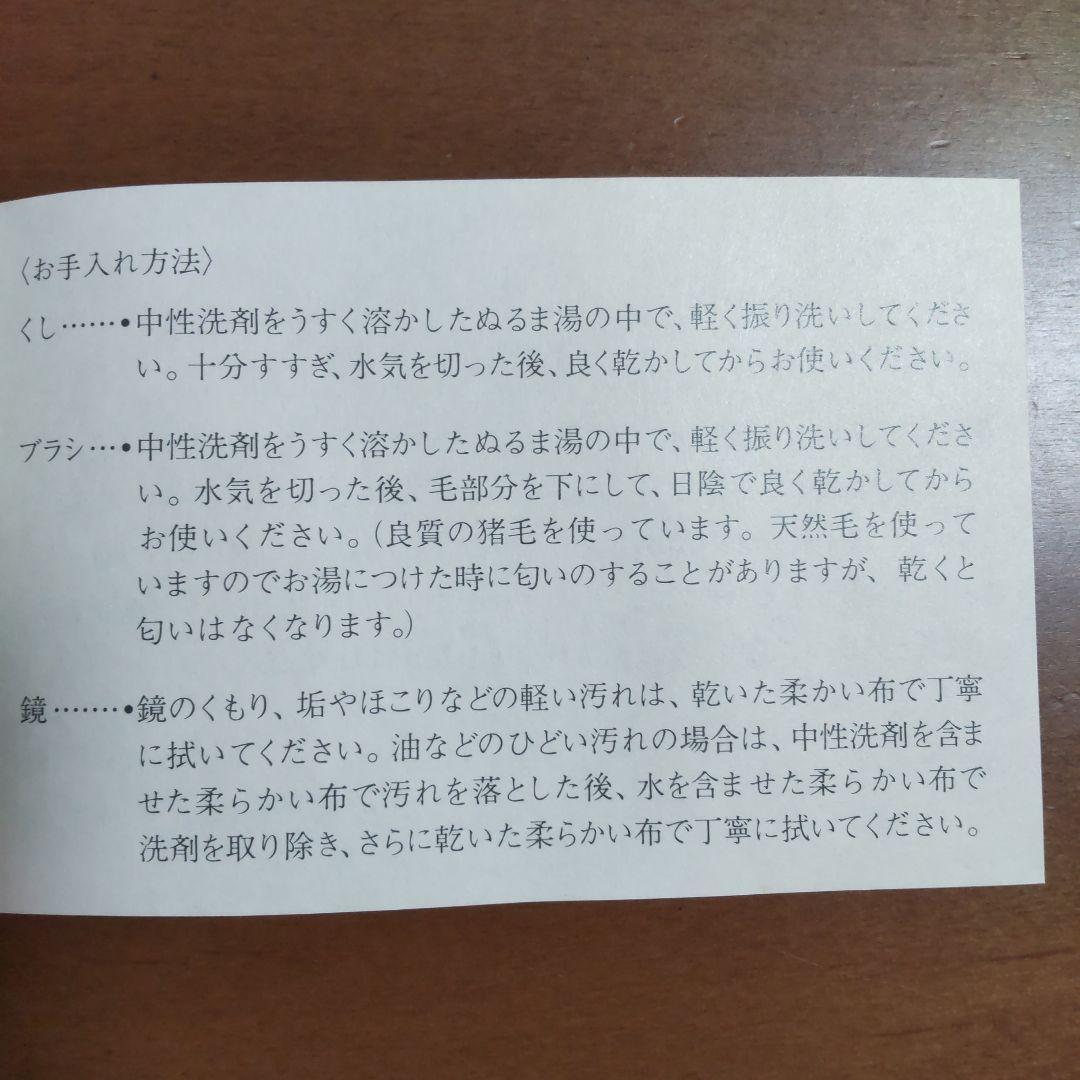 〈お手入れ方法〉
くし……•中性洗剤をうすく溶かしたぬるま湯の中で、軽く振り洗いしてくださ
い。十分すすぎ、水気を切った後、良く乾かしてからお使いください。
ブラシ…•中性洗剤をうすく溶かしたぬるま湯の中で、軽く振り洗いしてくださ
い。水気を切った後、毛部分を下にして、日陰で良く乾かしてから
お使いください。（良質の猪毛を使っています。天然毛を使って
いますのでお湯につけた時に匂いのすることがありますが、乾くと
匂いはなくなります。）
鏡………•鏡のくもり、垢やほこりなどの軽い汚れは、乾いた柔かい布で丁寧
に拭いてください。油などのひどい汚れの場合は、中性洗剤を含ま
せた柔らかい布で汚れを落とした後、水を含ませた柔らかい布で
洗剤を取り除き、さらに乾いた柔らかい布で丁寧に拭いてください。